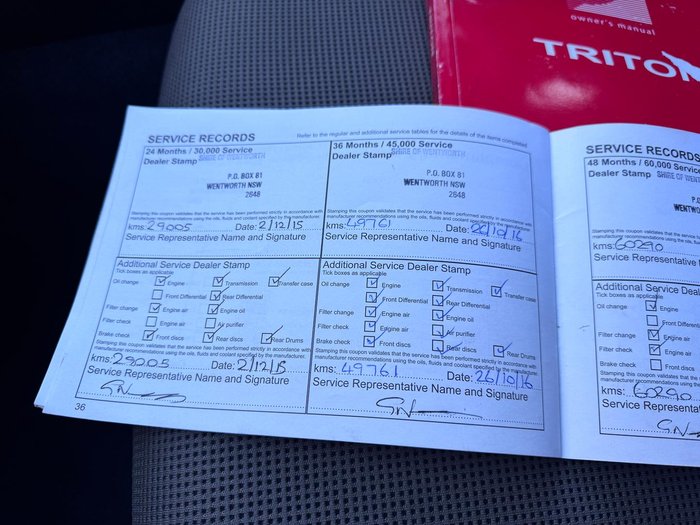 owner's manual
TRITON
SERVICE RECORDS
Refer to the regular and additional service tables for the details of the items completed
24 Months / 30,000 Service
Dealer Stamp
SHIRE OF WENTWORTH
P.O. BOX 81
WENTWORTH NSW
2648
Stamping this coupon validates that the service has been performed strictly in accordance with
manufacturer recommendations using the oils, fluids and coolant specified by the manufacturer.
kms: 29005 Date: 2/12/15
Service Representative Name and Signature
Additional Service Dealer Stamp
Tick boxes as applicable
Oil change Engine Transmission Transfer case
Front Differential Rear Differential
Filter change Engine air Engine oil
Filter check Engine air Air purifier
Brake check Front discs Rear discs Rear Drums
Stamping this coupon validates that the service has been performed strictly in accordance with
manufacturer recommendations using the oils, fluids and coolant specified by the manufacturer.
kms: 29005 Date: 2/12/15
Service Representative Name and Signature
36
36 Months / 45,000 Service
Dealer Stamp
SHIRE OF WENTWORTH
P.O. BOX 81
WENTWORTH NSW
2648
Stamping this coupon validates that the service has been performed strictly in accordance with
manufacturer recommendations using the oils, fluids and coolant specified by the manufacturer.
kms: 49761 Date: 26/10/16
Service Representative Name and Signature
Additional Service Dealer Stamp
Tick boxes as applicable
Oil change Engine Transmission Transfer case
Front Differential Rear Differential
Filter change Engine air Engine oil
Filter check Engine air Air purifier
Brake check Front discs Rear discs Rear Drums
Stamping this coupon validates that the service has been performed strictly in accordance with
manufacturer recommendations using the oils, fluids and coolant specified by the manufacturer.
kms: 49761 Date: 26/10/16
Service Representative Name and Signature
SERVICE RECORDS
48 Months / 60,000
Dealer Stamp
SHIRE OF
P.O.
WENTWO
Stamping this coupon validates that the
manufacturer recommendations using
kms: 60290
Service Representative
Additional Service
Tick boxes as applicable
Oil change Engine
Front
Filter change Engine
Filter check Engine
Brake check Front
Stamping this coupon validates that the
manufacturer recommendations using
kms: 60290
Service Representat